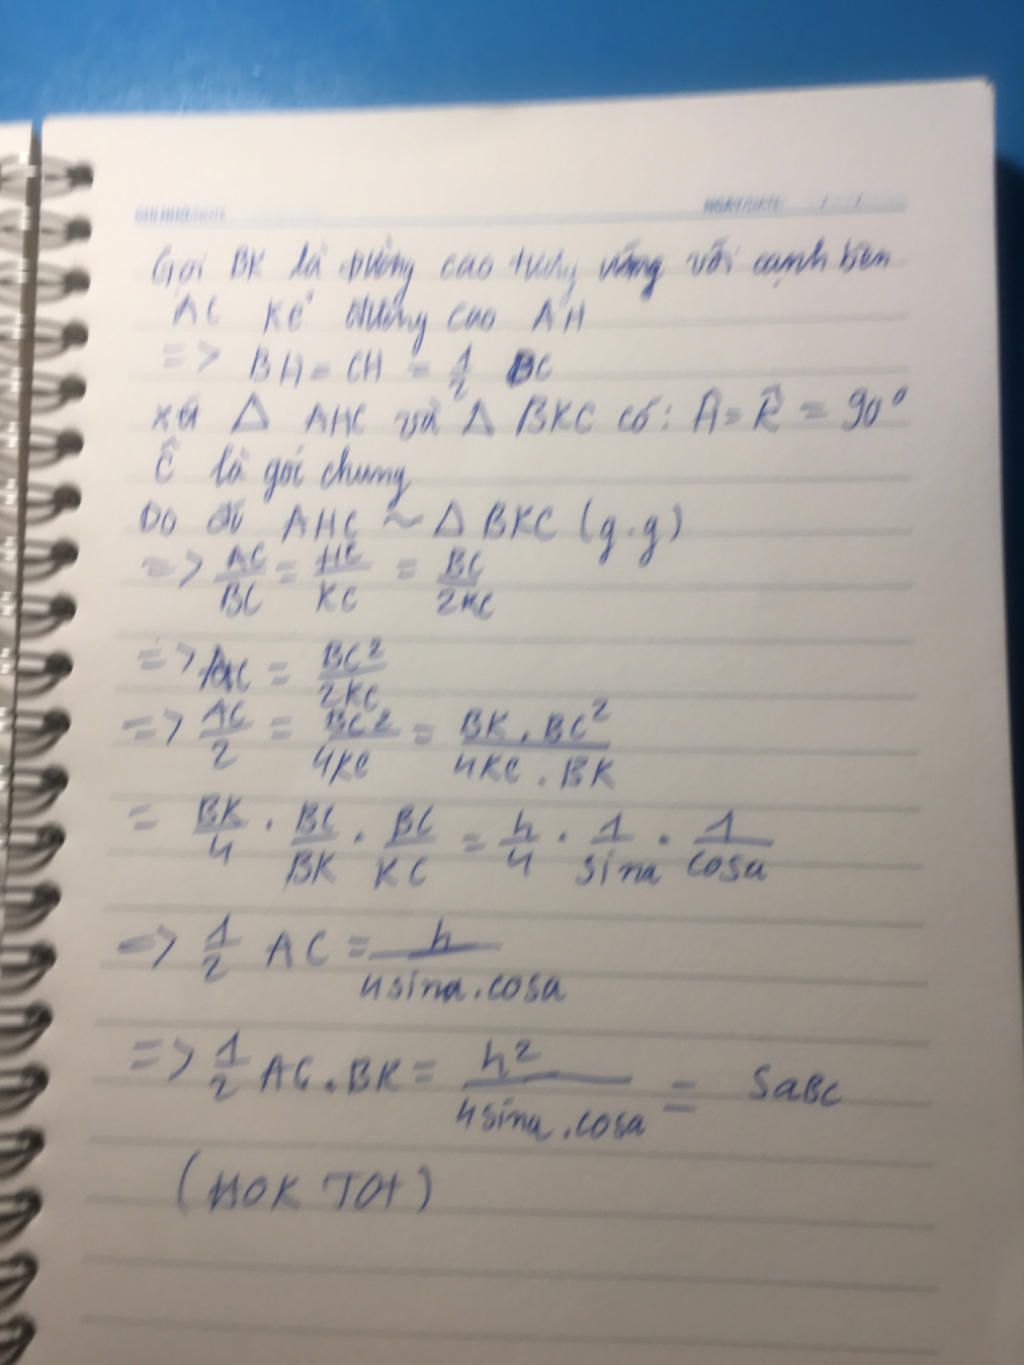 Gọi BK là đường cao tương ứng với cạnh bên
AC kẻ đường cao AH
=> BH = CH = 1/2 BC
xét △ AHC và △ BKC có: Ĥ = K̂ = 90°
Ĉ là góc chung
Do đó AHC ~ △ BKC (g.g)
=> AC/BC = HC/KC = BC/2KC
=> AC = BC²/2KC
=> AC/2 = BC²/4KC = BK.BC²/4KC.BK
= BK/4 . BC/BK . BC/KC = h/4 . 1/sina . 1/cosa
=> 1/2 AC = h/4sina.cosa
=> 1/2 AC.BK = h²/4sina.cosa = SABC
(HOK TOT)